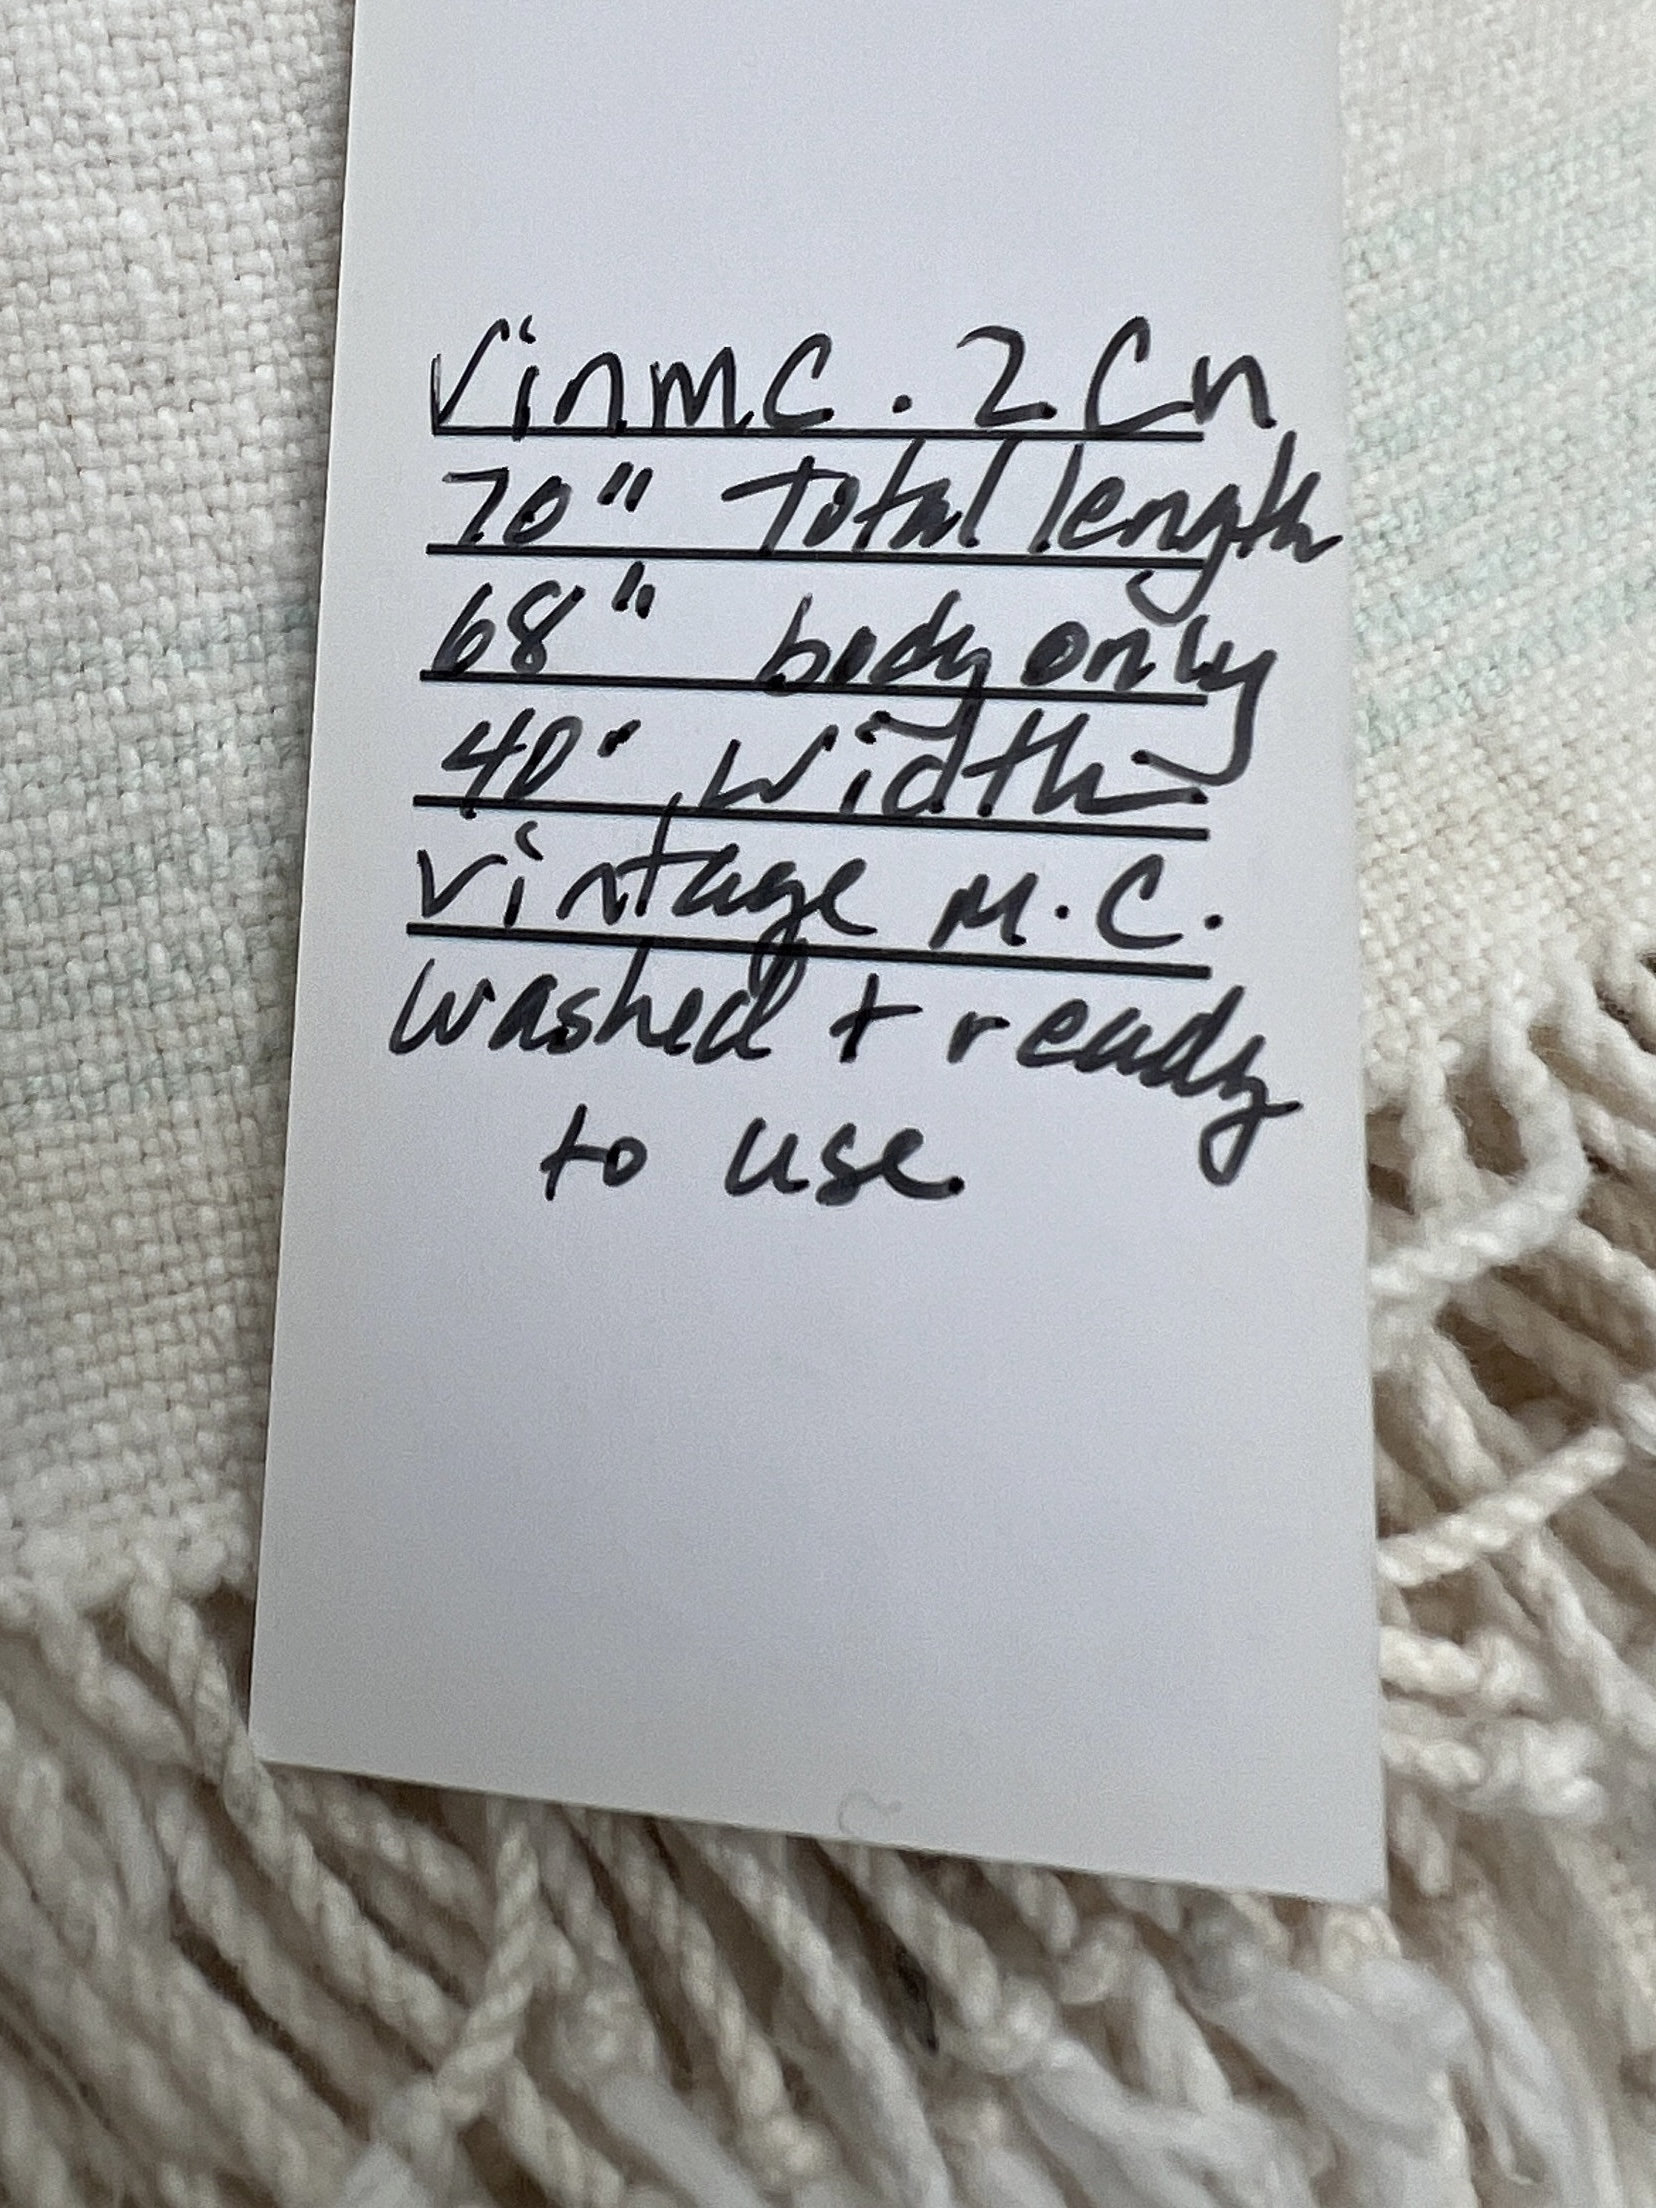 VinM.C. 2 Cn
70" total length
68" body only
40" width
Vintage M.C.
washed + ready
to use